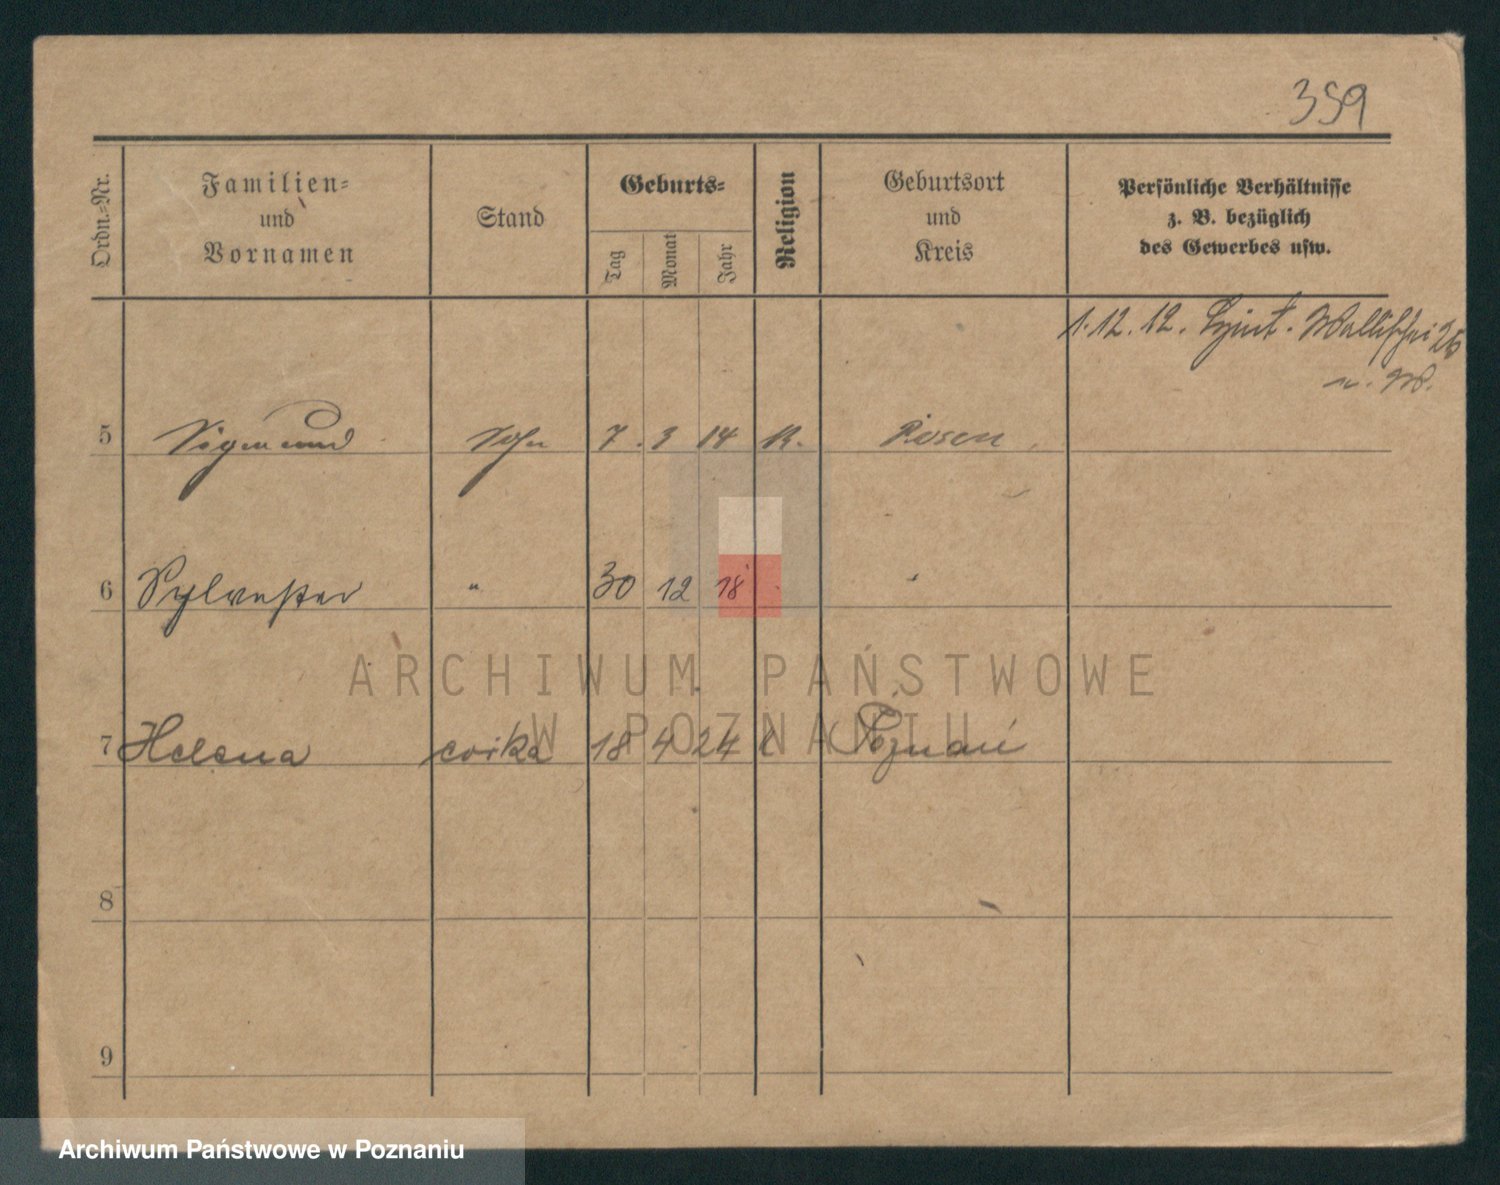 359
Ordn.=Nr.
Familien=
und
Vornamen
Stand
Geburts=
Tag
Monat
Jahr
Religion
Geburtsort
und
Kreis
Persönliche Verhältnisse
z. B. bezüglich
des Gewerbes usw.
1.12.12. Wallischei 26
5 Sigmund Sohn 7. 3 14 K. Posen
6 Sylvester " 30 12 18 "
7 Helena córka 18 4 24 k Poznań
8
9
ARCHIWUM PAŃSTWOWE
W POZNANIU
Archiwum Państwowe w Poznaniu